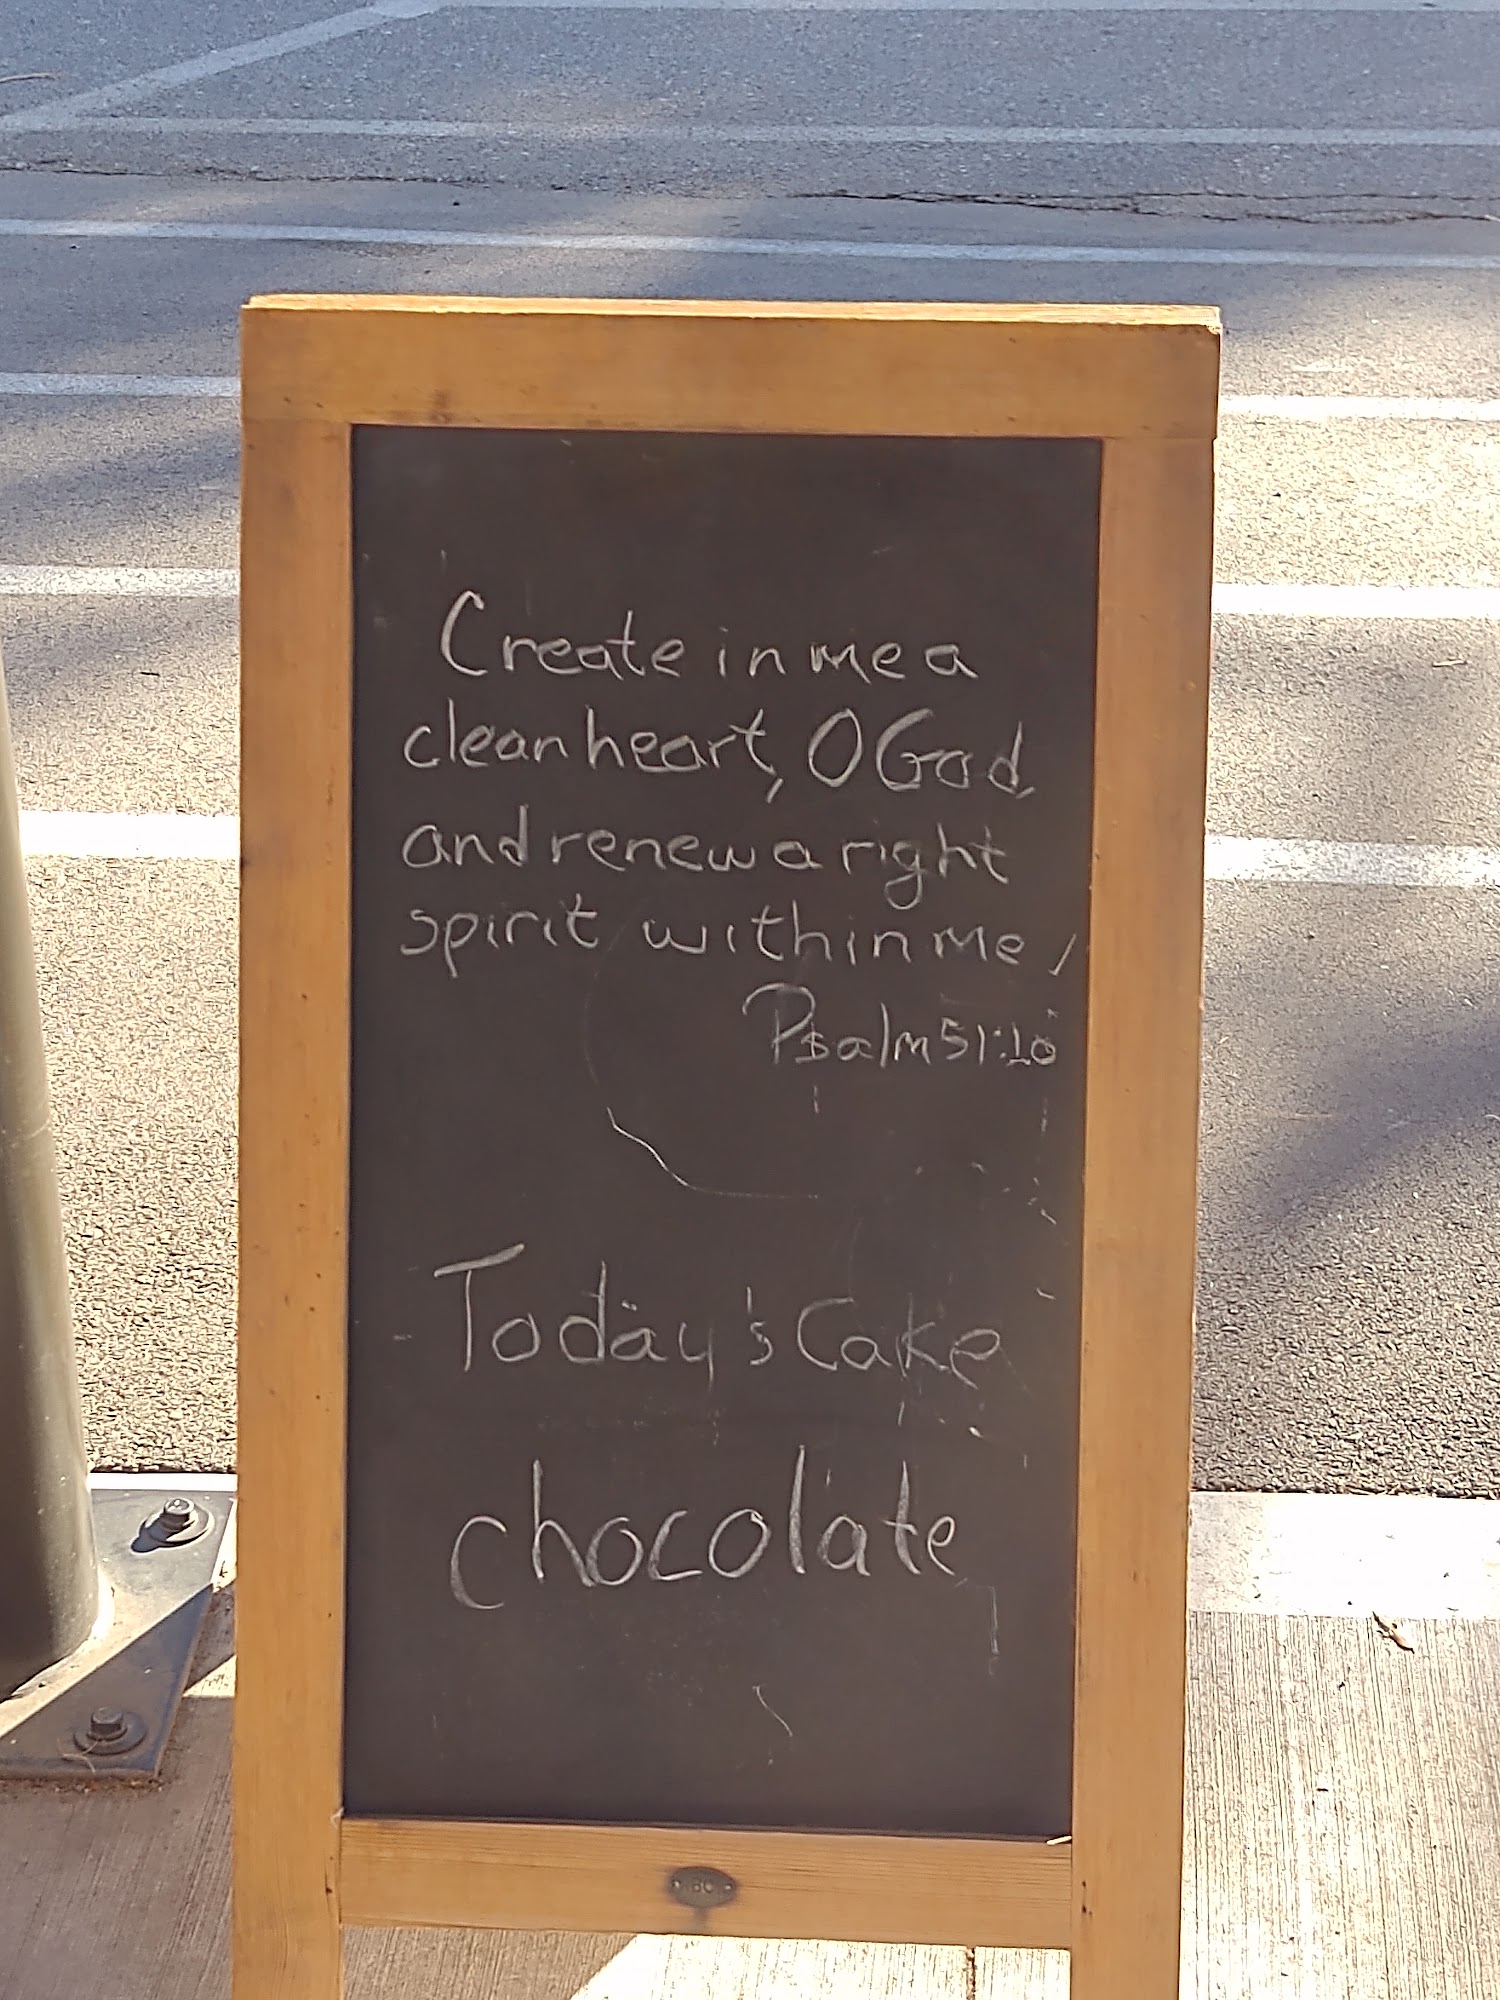 Create in me a
clean heart, O God,
and renew a right
spirit within me /
Psalm 51:10
Today's Cake
chocolate